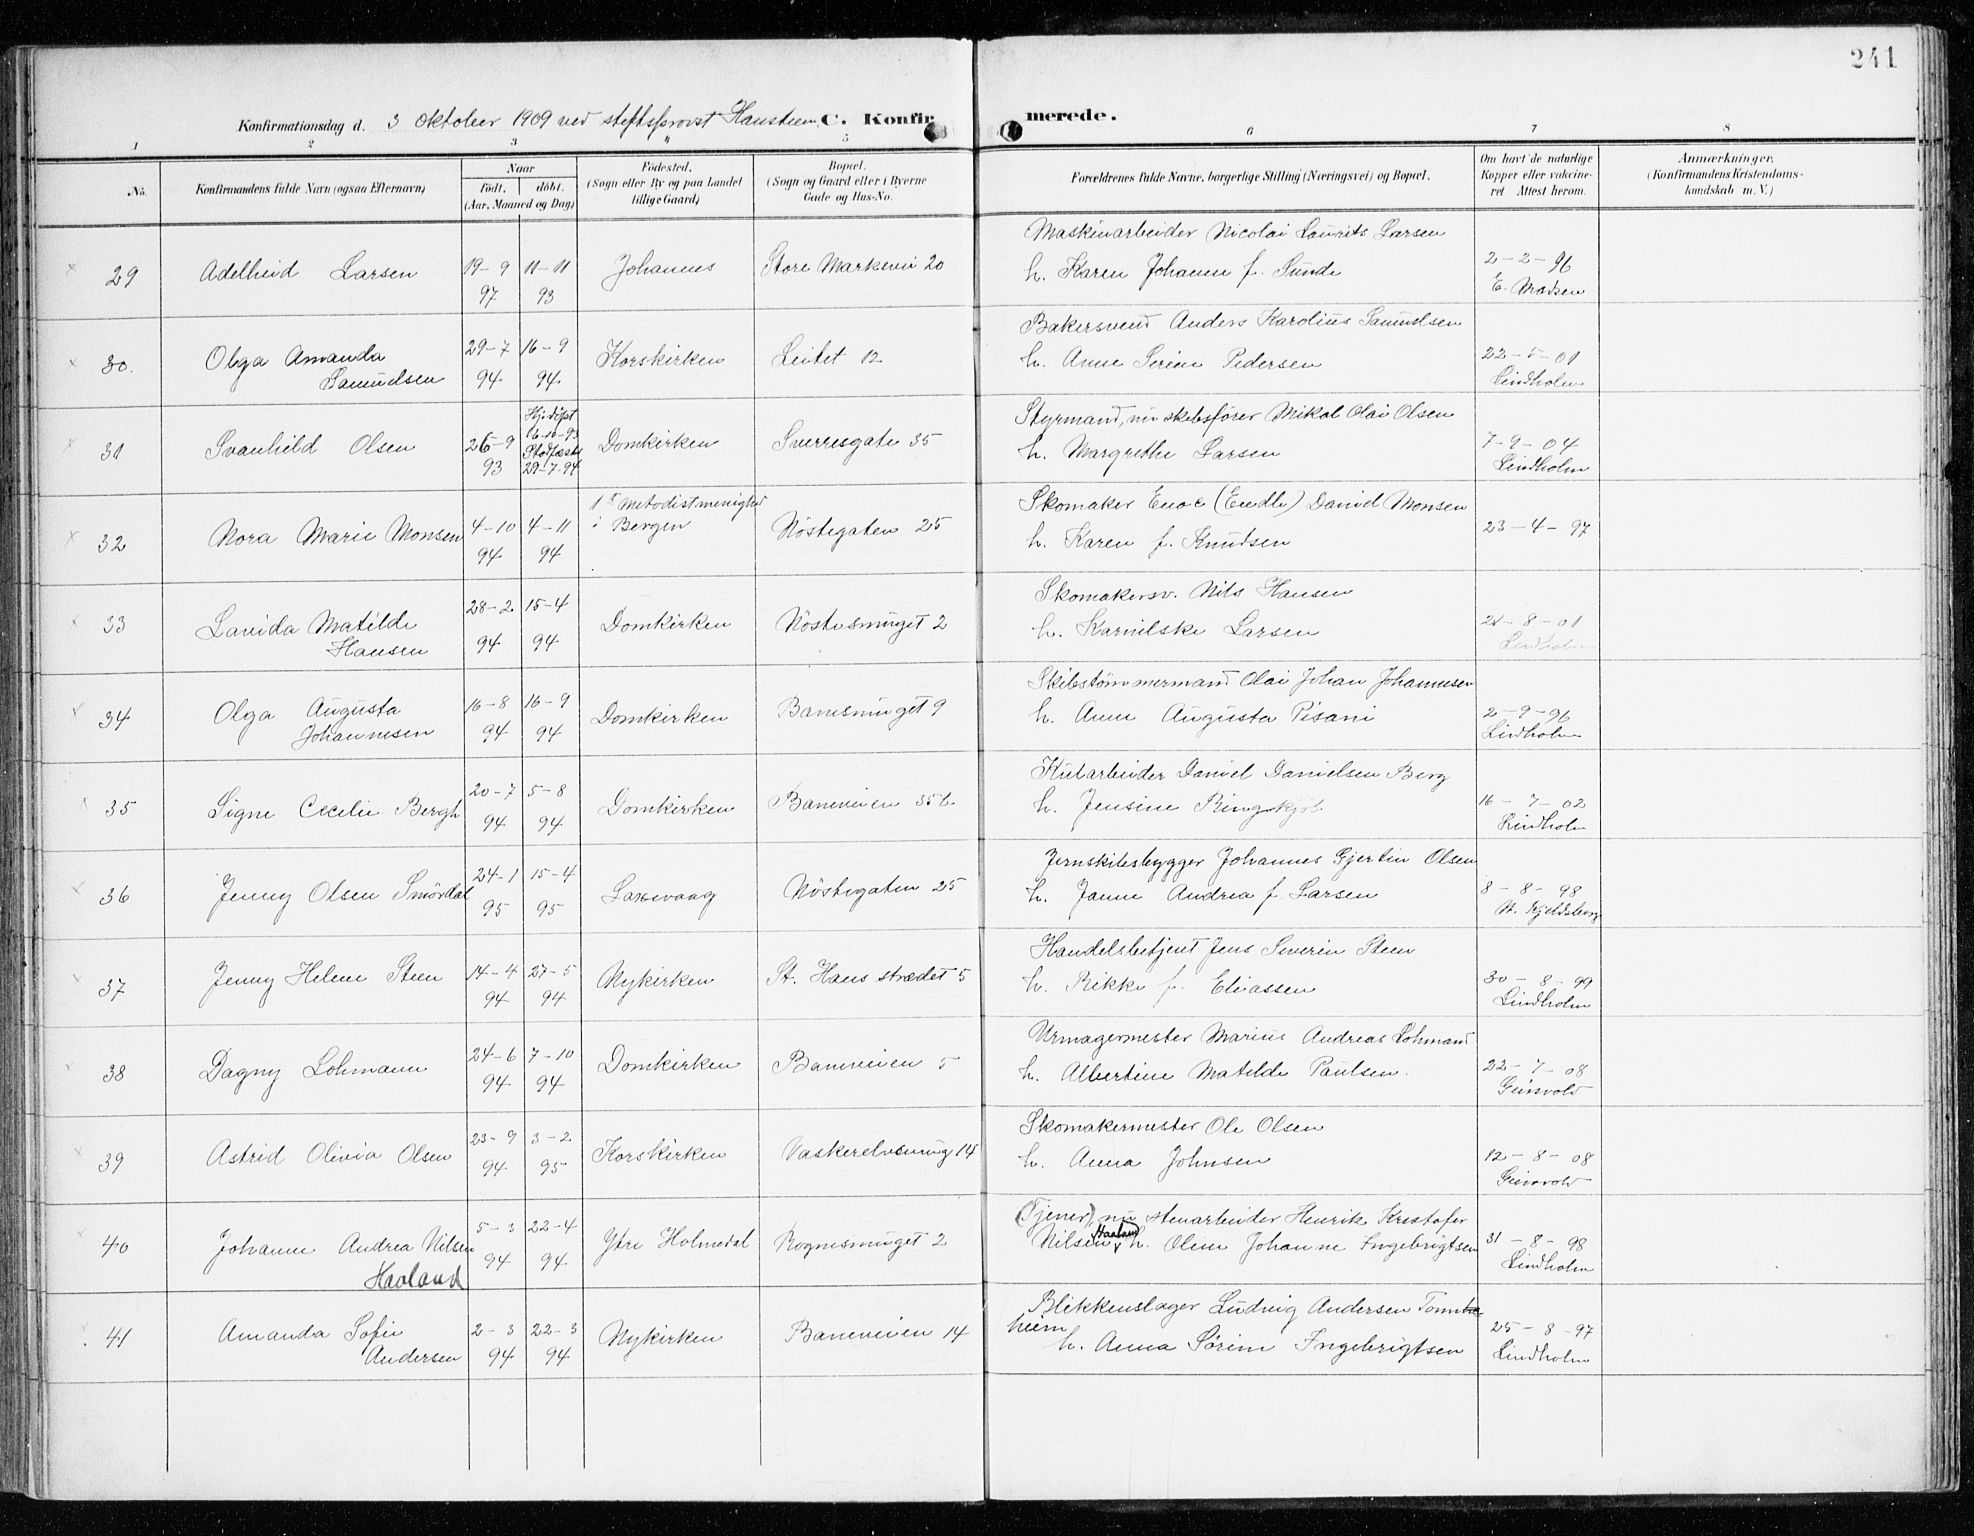 241
Konfirmationsdag d. 3 Oktober 1909 ved stiftsprovst Hansteen C. Konfirmerede.
1 2 3 5 6 7 8
No. Konfirmandens fulde Navn (ogsaa Efternavn) Naar Födt. döbt. (Aar, Maaned og Dag) Födested. (Sogn eller By og paa Landet tillige Gaard) Bopæl. (Sogn og Gaard eller i Byerne Gade og Hus-No. Forældrenes fulde Navne, borgerlige Stilling (Næringsvei) og Bopæl. Om havt de naturlige Kopper eller vakcineret. Attest herom. Anmærkninger. (Konfirmandens Kristendomskundskab m. V.)
Maskinarbeider Nicolai Laurits Larsen
29 Adelheid Larsen 19-9 97 11-11 93 Johannes Store Markevei 20 h. Karen Johanne f. Sunde 2-2-96 E. Madsen
Bakersvend Anders Karolius Samuelsen
30. Olga Amanda Samuelsen 29-7 94 16-9 94 Korskirken Leitet 12 h. Anne Serine Pedersen 22-5-01 Lindholm
Styrmand, nu skibsfører Mikal Olai Olsen
31 Svanhild Olsen 26-9 93 Hj.döpt 16-10-93 Stadfæst 29-7-94 Domkirken Sverresgate 35 h. Margrethe Larsen 7-9-04 Lindholm
Skomaker Enoc (Endle) David Monsen
32 Nora Marie Monsen 4-10 94 4-11 94 1st Metodistmenighed i Bergen Nöstegaten 25 h. Karen f. Knudsen 23-4-97
Skomakersv. Nils Hansen
33 Lavida Matilde Hansen 28-2 94 15-4 94 Domkirken Nöstesmuget 2 h. Karnilske Larsen 21-8-01 Lindholm
Skibstömmermand Olai Johan Johannesen
34 Olga Augusta Johannesen 16-8 94 16-9 94 Domkirken Banesmuget 9 h. Anne Augusta Pisani 2-9-96 Lindholm
Kularbeider Daniel Danielsen Berg
35 Signe Cecilie Bergh 20-7 94 5-8 94 Domkirken Baneveien 35b. h. Jensine Ringskjöb 16-7-02 Lindholm
Jernskibsbygger Johannes Gjertin Olsen
36 Jenny Olsen Smördal 24-1 95 15-4 95 Laxevaag Nöstegaten 25 h. Janne Andrea f. Larsen 8-8-98 N. Kjeldsberg
Handelsbetjent Jens Severin Steen
37 Jenny Helene Steen 14-4 94 27-5 94 Nykirken St. Hans strædet 5 h. Rikke f. Eliassen 30-8-99 Lindholm
Urmagermester Marius Andreas Lohmann
38 Dagny Lohmann 24-6 94 7-10 94 Domkirken Baneveien 5 h. Albertine Matilde Paulsen. 22-7-08 Greisvold
Skomakermester Ole Olsen
39 Astrid Olivia Olsen 23-9 94 3-2 95 Korskirken Vaskerelvsmug 14 h. Anna Johnsen 12-8-08 Greisvold
(Tjener), nu stenarbeider Henrik Kristofer
40 Johanne Andrea Nilsen Havland 5-3 94 22-4 94 Ytre Holmedal Rognesmuget 2 Nilsen Haaland, h. Oline Johanne Ingebrigtsen 31-8-98 Lindholm
Blikkenslager Ludvig Andersen Tonnheim
41 Amanda Sofie Andersen 2-3 94 22-3 94 Nykirken Baneveien 14 h. Anna Sörine Ingebrigtsen 25-8-97 Lindholm